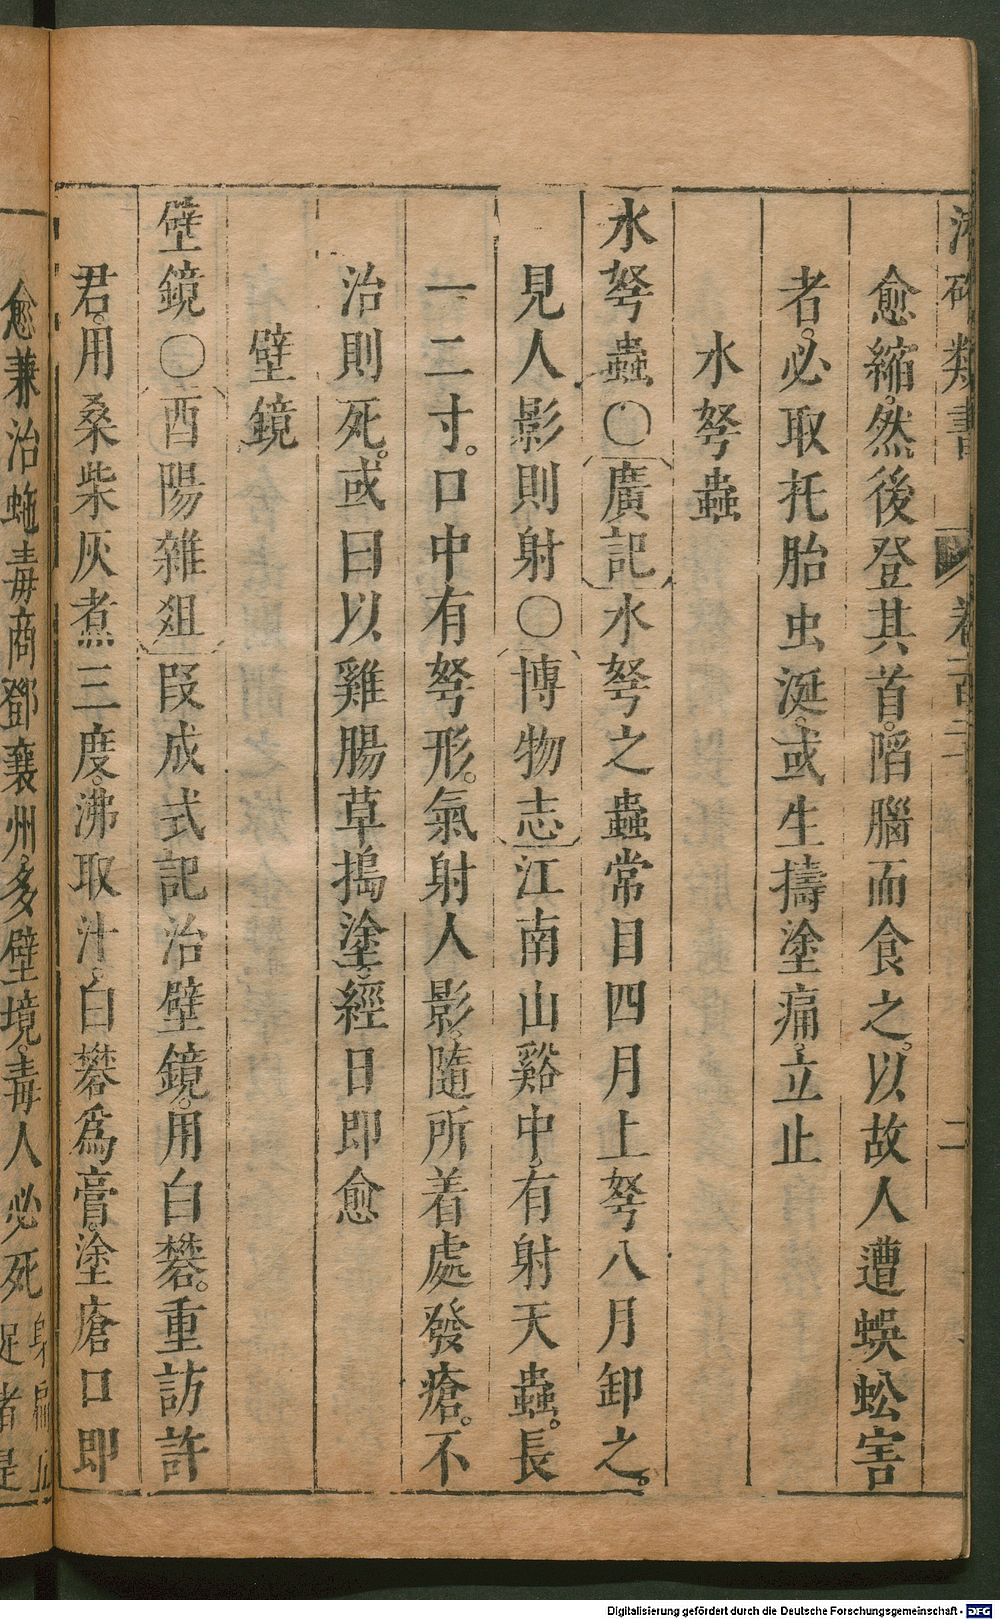 愈縮。然後登其首。陷腦而食之。以故人遭蜈蚣害
者。必取托胎虫涎。或生擣塗痛。立止
水弩蟲
水弩蟲〇廣記水弩之蟲常目四月上弩八月卸之。
見人影則射〇博物志江南山谿中。有射天蟲。長
一二寸。口中有弩形。氣射人影。隨所着處發瘡。不
治則死。或曰以雞腸草搗塗。經日即愈
壁鏡
壁鏡〇酉陽雜俎段成式記治壁鏡。用白礬。重訪許
君。用桑柴灰煮三度。沸取汁。白礬爲膏。塗瘡口即
愈兼治虵毒商鄧襄州。多壁境。毒人必死
Digitalisierung gefördert durch die Deutsche Forschungsgemeinschaft - DFG